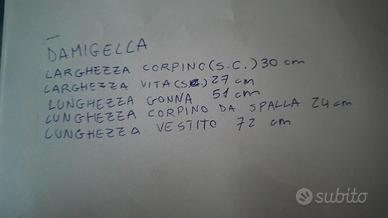 DAMIGELLA
LARGHEZZA CORPINO (S.C.) 30 cm
LARGHEZZA VITA (SC) 27 cm
LUNGHEZZA GONNA 51 cm
LUNGHEZZA CORPINO DA SPALLA 24 cm
LUNGHEZZA VESTITO 72 cm
subito